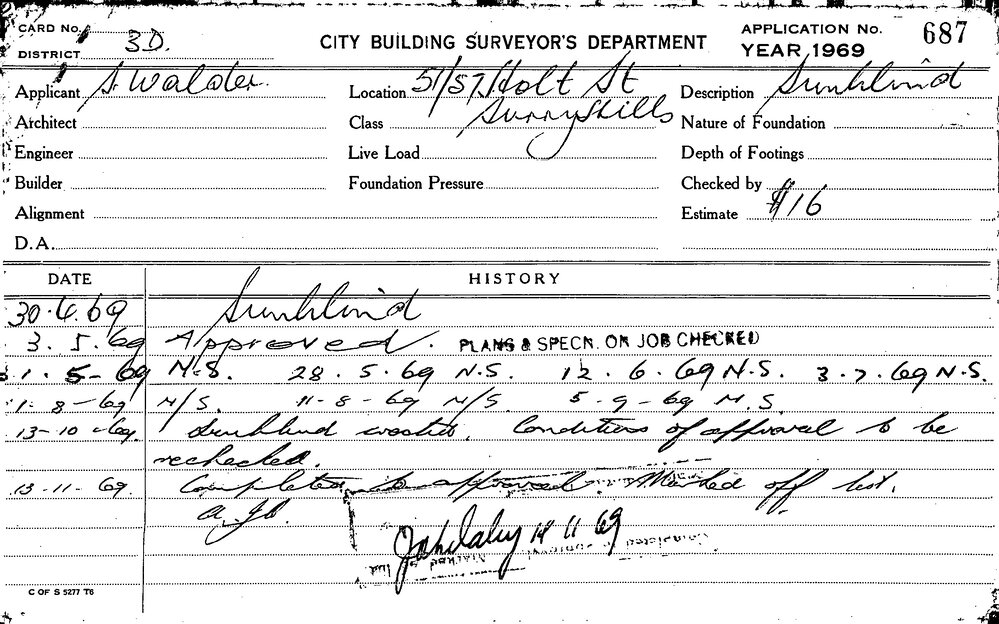 CARD No.
DISTRICT 3D.
CITY BUILDING SURVEYOR'S DEPARTMENT
APPLICATION No. 687
YEAR 1969
Applicant S. Walder.
Location 51/57 Holt St
Description Sunblind
Architect
Class Surry Hills
Nature of Foundation
Engineer
Live Load
Depth of Footings
Builder
Foundation Pressure
Checked by
Alignment
Estimate $16
D.A.
DATE HISTORY
30.4.69 Sunblind
3.5.69 Approved. PLANS & SPECN. ON JOB CHECKED
1.5-69 N.S. 28.5.69 N.S. 12.6.69 N.S. 3.7.69 N.S.
1-8-69 N/S. 11-8-69 N/S. 5-9-69 N.S.
13-10-69. Sunblind erected. Conditions of approval to be
rechecked.
13-11-69. Completed as approved. Marked off list.
14 11 69
C OF S 5277 T6